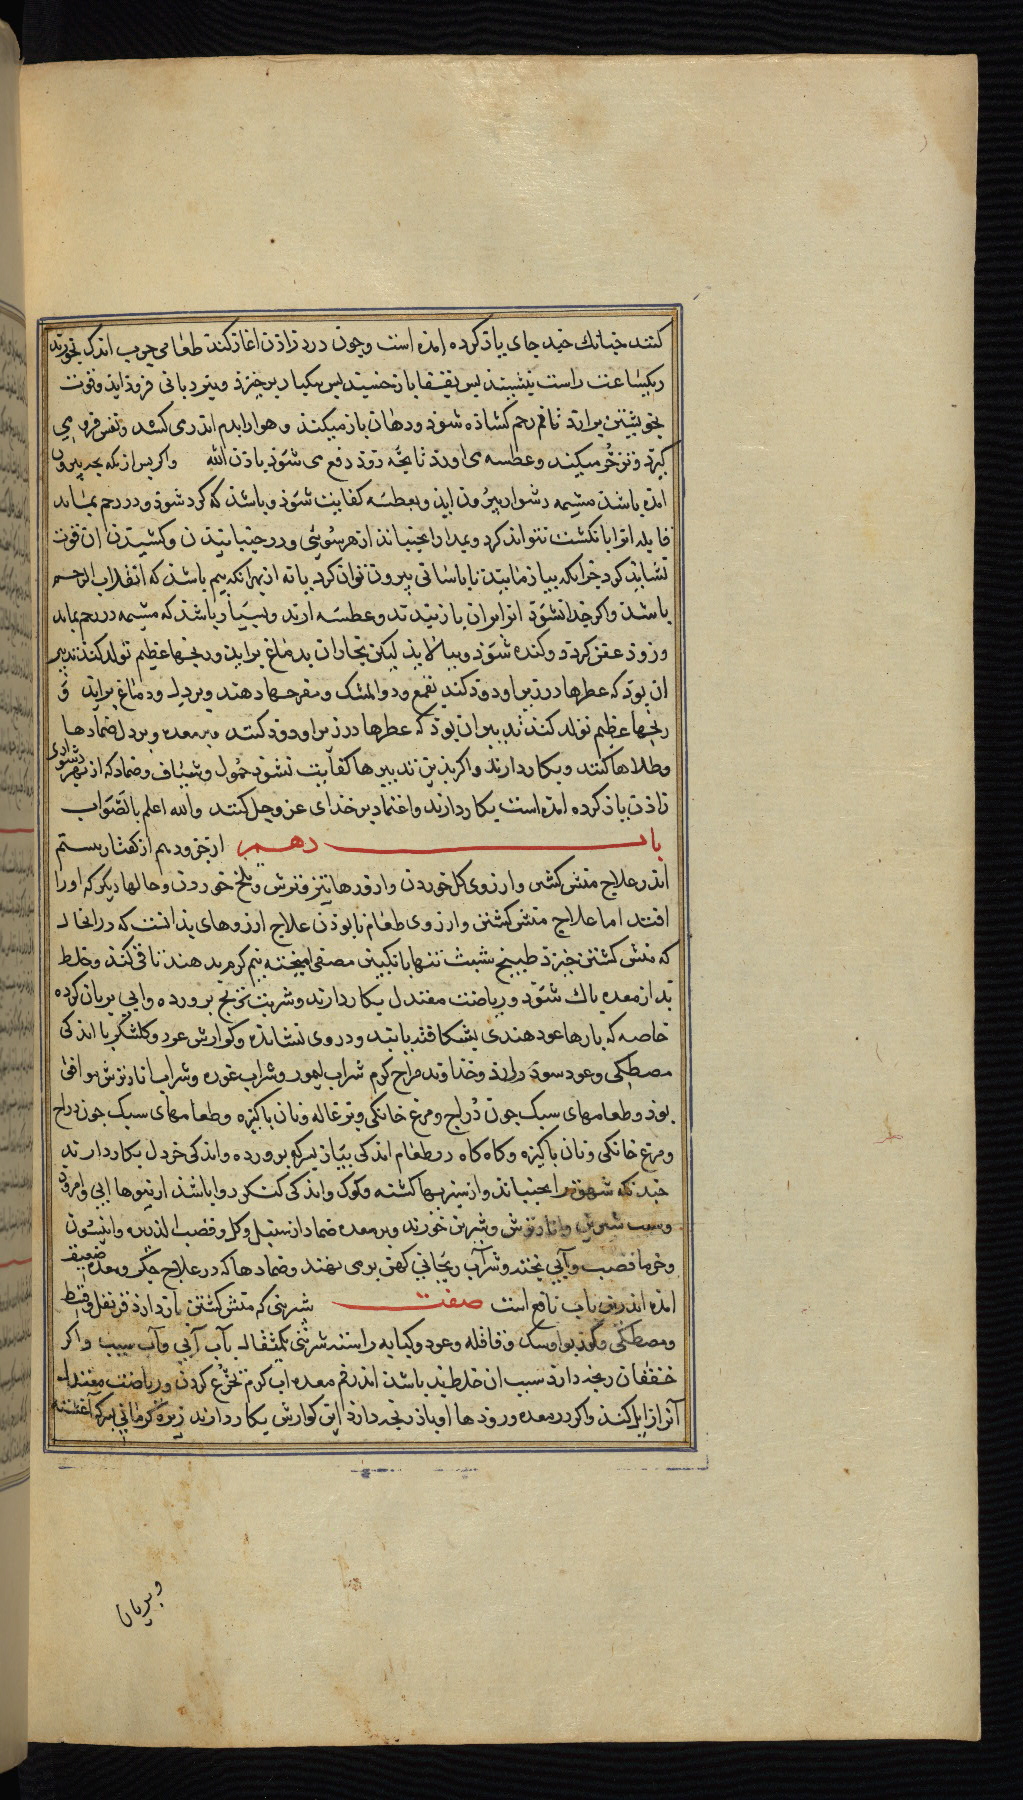 کنند چنانك چند جای یاد کرده امده است وچون درد زادن اغاز کند طعامی چرب اندک بخورند
ویکساعت راست بنشیند پس بقفا باز خسبد پس بیکبار برخیزد وبنردبانی فروذاید وقوت
بخویشتن برارد تا فم رحم کشاذه شود ودهان باز میکند وهوا را بدم اندر می کشد ونفس فرو می
کیرد وزور میکند وعطسه می اورد تا بچه زود دفع می شود باذن الله واکر پس از انکه بچه بیرون
امده باشد مشیمه دشوار بیرون اید وبعطسه کفایت شوذ وباشد که کرد شود ودر رحم بماند
قابله انرا بانکشت نتواند کرد وبمدارا بجنباند از هر سویی ودر جنبانیدن وکشیدن ان قوت
نشاید کرد
باشد واکر جدا نشود انرا بران باز بندند وعطسه ارند وبسیار باشد که مشیمه در رحم بماند
وزود عفن کردد وکنده شوذ وببالا اید لیکن بخار ان بدماغ براید ورنجها عظیم تولد کند تدبیر
ان بود که عطرها در زیر او دود کنند بقمع ودوالمسک ومفرحها دهند وبر دل ودماغ براید و
رنجها عظیم تولد کند تدبیر ان بود که عطرها در زیر او دود کنند وبر معده وبر دل ضمادها
وطلاها کنند وبکار دارند واکر بذین تدبیرها کفایت نشود حمول وشیاف وضماد که از بهر دشواری
زادن یاذ کرده امده است بکار دارند واعتماد بر خذای عز وجل کنند والله اعلم بالصواب
باب دهم از جزو دوم از کفتار بیستم
اندر علاج منش کشتن وارزوی کل خوردن وارزوها تیز وترش وتلخ خوردن وحالها دیکر که اورا
افتد اما علاج منش کشتن وارزوی طعام نابوذن علاج ارزوهای بذ انست که در انحال
که منش کشتن خیزد طبیخ شبت تنها با انکبین مصفی امیخته نیم کرم بدهند تا قی کند وخلط
بد از معده پاك شود وریاضت معتدل بکار دارند وشربت ترنج برورده وابی بریان کرده
خاصه که پارها عود هندی بشکافته باشد ودر وی نشانده وکوارش عود وکلشکر با اندکی
مصطکی وعود سوذ دارد وخداوند مزاج کرم شراب لیمو وشراب غوره وشراب انار ترش موافق
بود وطعامهای سبک چون دراج ومرغ خانکی وبزغاله ونان پاکیزه وطعامهای سبک چون دراج
ومرغ خانکی ونان پاکیزه وکاه کاه در طعام اندکی پیاز بسرکه برورده واندکی خردل بکار دارند
چندانکه شهوت را بجنباند واز سیر بها کشته وکوک واندکی کنکر روا باشد از میوها ابی وامرود
وسیب شیرین وانار ترش وشیرین خورند وبر معده ضماد از سنبل وکل وقصب الذریره وانیسون
وخرما قصب وآبی پخته وشراب ریحانی کهن برمی نهند وضمادها که در علاج جکر ومعده ضعیف
امده اندرین باب نافع است صفت شربتی که منش کشتن باز دارد قرنفل قسط
ومصطکی وکوز بوا وسک وقاقله وعود وکبابه راستا راست شربتی یکمثقال باب آبی وآب سیب واکر
خفقان رنجه دارد سبب ان خلط بد باشد اندر فم معده اب کرم تجرع کردن وریاضت معتدل
آنرا زایل کند واکر در معده ورودها او باذ رنجه دارد این کوارش بکار دارند زیره کرمانی بسرکه آغشته
وبریان